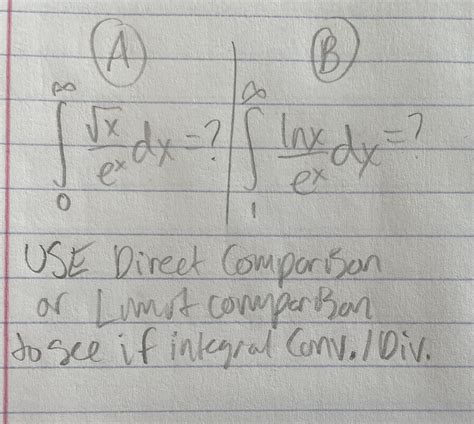 A B
∞ ∞
∫ √x/eˣ dx = ? ∫ lnx/eˣ dx = ?
0 1
USE Direct Comparison
or Limit comparison
to see if integral Conv./Div.